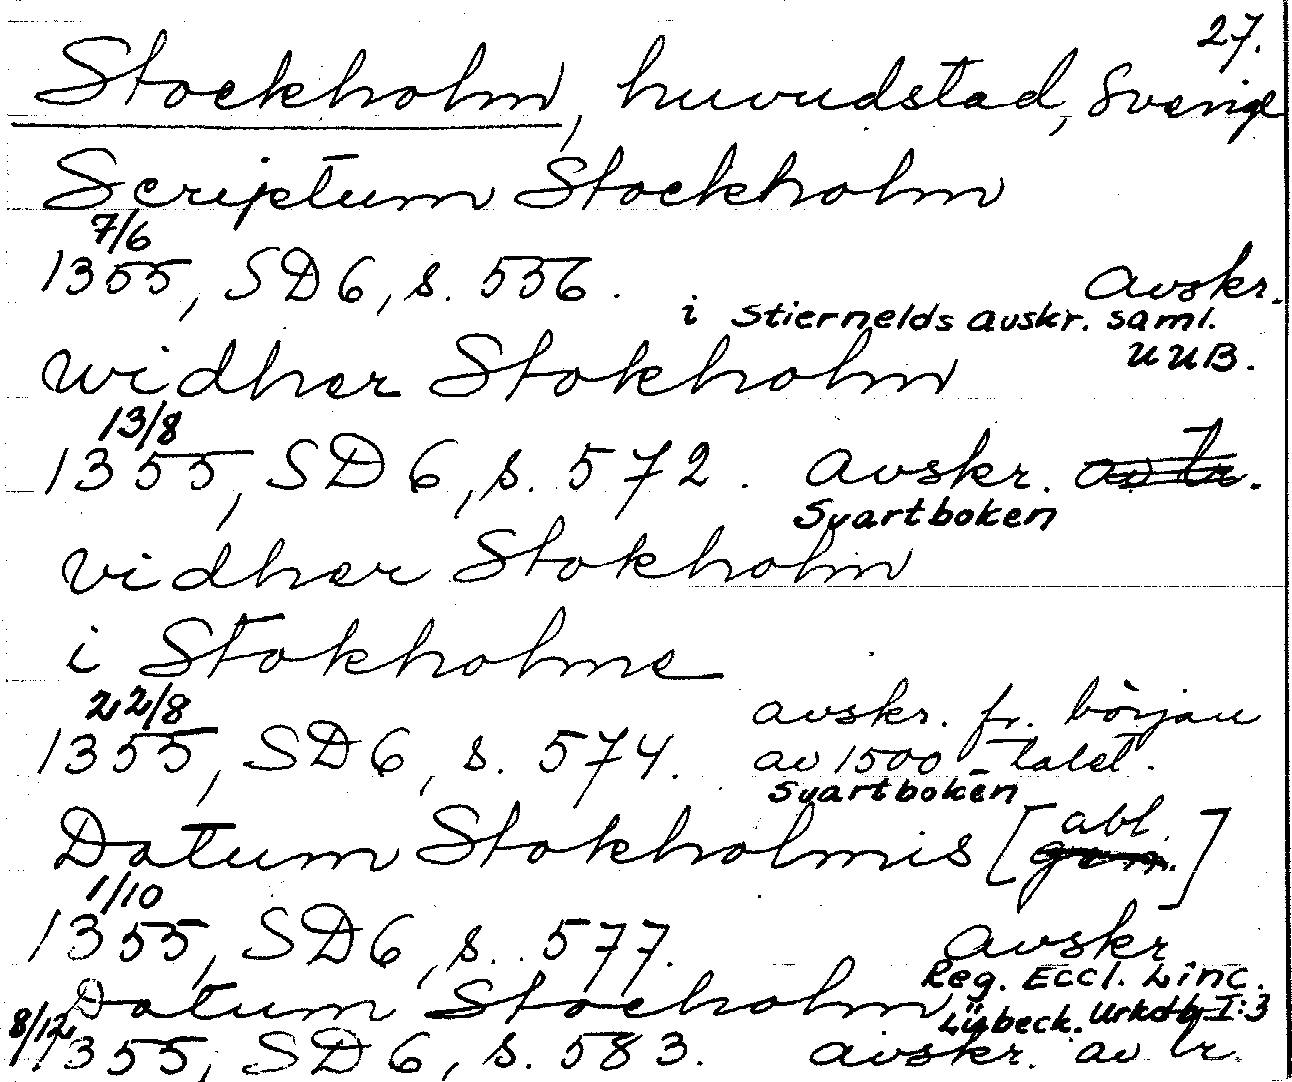 27.
Stockholm, huvudstad, Sverige
Scriptum Stockholm
7/6
1355, SD6, s. 556. avskr.
i Stiernelds avskr. saml.
UUB.
widher Stokholm
13/8
1355, SD6, s. 572. avskr. av tr.
Svartboken
vidher Stokholm
i Stokholme
22/8
avskr. fr. början
1355, SD6, s. 574. av 1500-talet.
Svartboken
Datum Stokholmis [abl. gen.]
1/10
1355, SD6, s. 577. avskr
Reg. Eccl. Linc.
Datum Stocholm
Lübeck. Urkdb I:3
8/12
1355, SD6, s. 583. avskr. av tr.